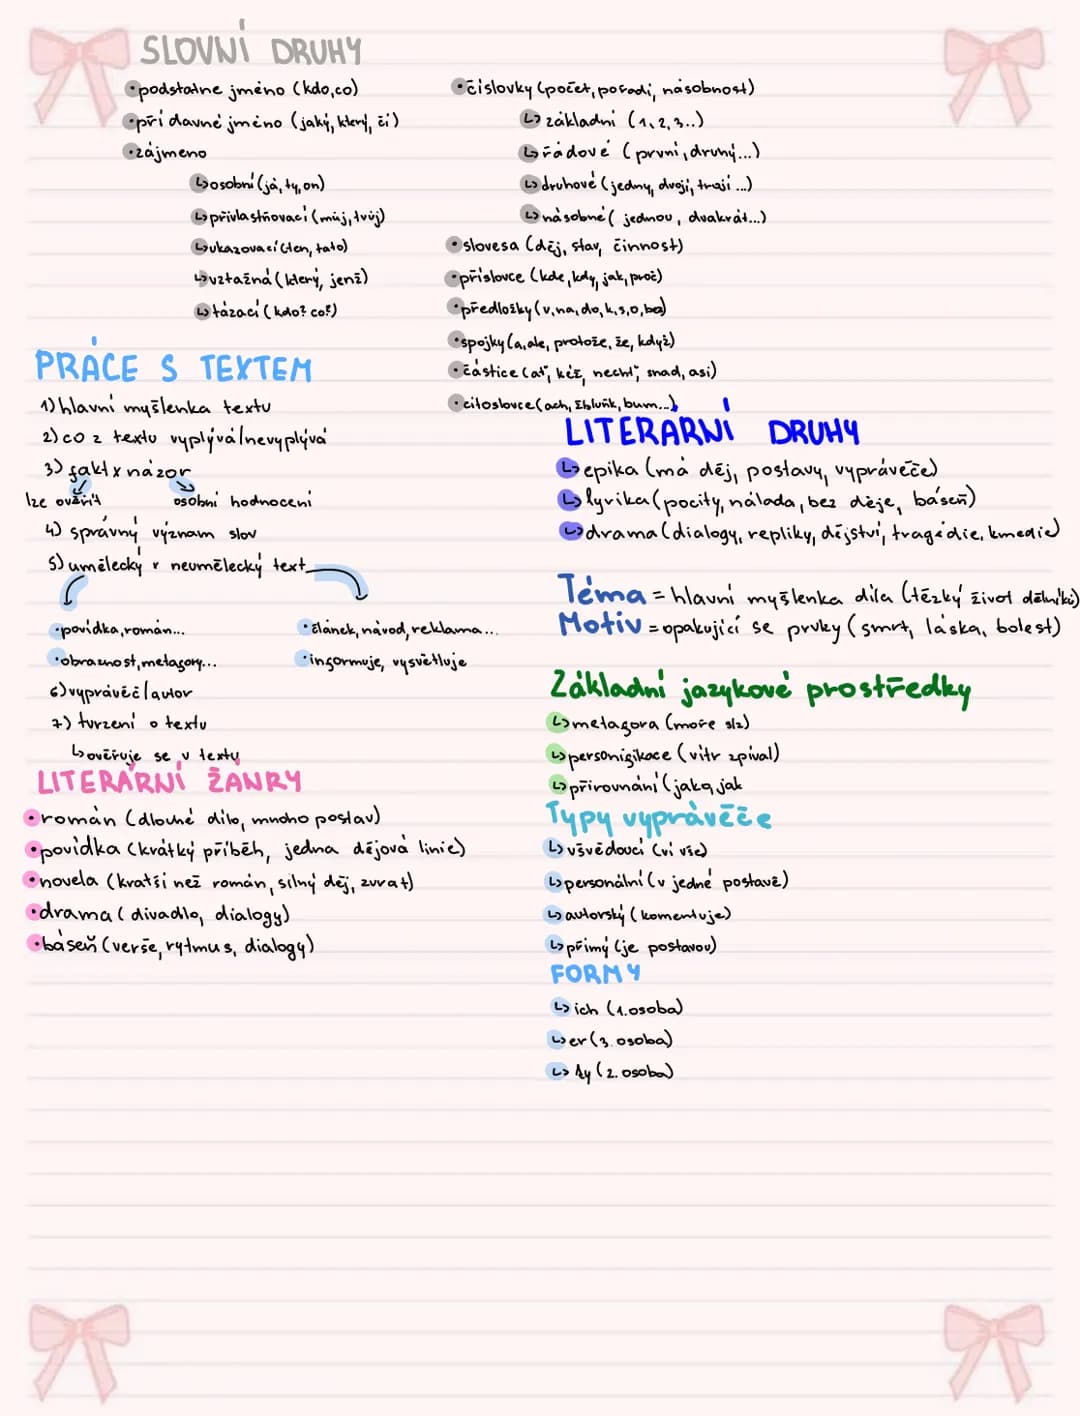 SLOVNÍ DRUHY
•podstatne jméno (kdo,co)
•přídavné jméno (jaký, který, čí)
•zájmeno
↳osobní (já, ty, on)
↳přivlastňovací (můj, tvůj)
↳ukazovací (ten, tato)
↳vztažná (který, jenž)
↳tázací (kdo? co?)
•číslovky (počet, pořadí, násobnost)
↳základní (1, 2, 3..)
↳řádové (první, druhý...)
↳druhové (jedny, dvojí, trojí ...)
↳násobné (jednou, dvakrát...)
•slovesa (děj, stav, činnost)
•příslovce (kde, kdy, jak, proč)
•předložky (v, na, do, k, s, o, bez)
•spojky (a, ale, protože, že, když)
•částice (ať, kéž, nechť, snad, asi)
•citoslovce (ach, žbluňk, bum...)
PRÁCE S TEXTEM
1) hlavní myšlenka textu
2) co z textu vyplývá/nevyplývá
3) fakt x názor
lze ověřit osobní hodnocení
4) správný význam slov
5) umělecký x neumělecký text
•povídka, román...
•obraznost, metafory...
•článek, návod, reklama...
•informuje, vysvětluje
6) vypravěč/autor
7) tvrzení o textu
↳ověřuje se v textu
LITERÁRNÍ ŽÁNRY
•román (dlouhé dílo, mnoho postav)
•povídka (krátký příběh, jedna dějová linie)
•novela (kratší než román, silný děj, zvrat)
•drama (divadlo, dialogy)
•báseň (verše, rytmus, dialogy)
LITERÁRNÍ DRUHY
↳epika (má děj, postavy, vypravěče)
↳lyrika (pocity, nálada, bez děje, báseň)
↳drama (dialogy, repliky, dějství, tragédie, kmedie)
Téma = hlavní myšlenka díla (těžký život dělníků)
Motiv = opakující se prvky (smrt, láska, bolest)
Základní jazykové prostředky
↳metafora (moře slz)
↳personifikace (vítr zpíval)
↳přirovnání (jako, jak
Typy vypravěče
↳vševědoucí (ví vše)
↳personální (v jedné postavě)
↳autorský (komentuje)
↳přímý (je postavou)
FORMY
↳ich (1. osoba)
↳er (3. osoba)
↳ty (2. osoba)